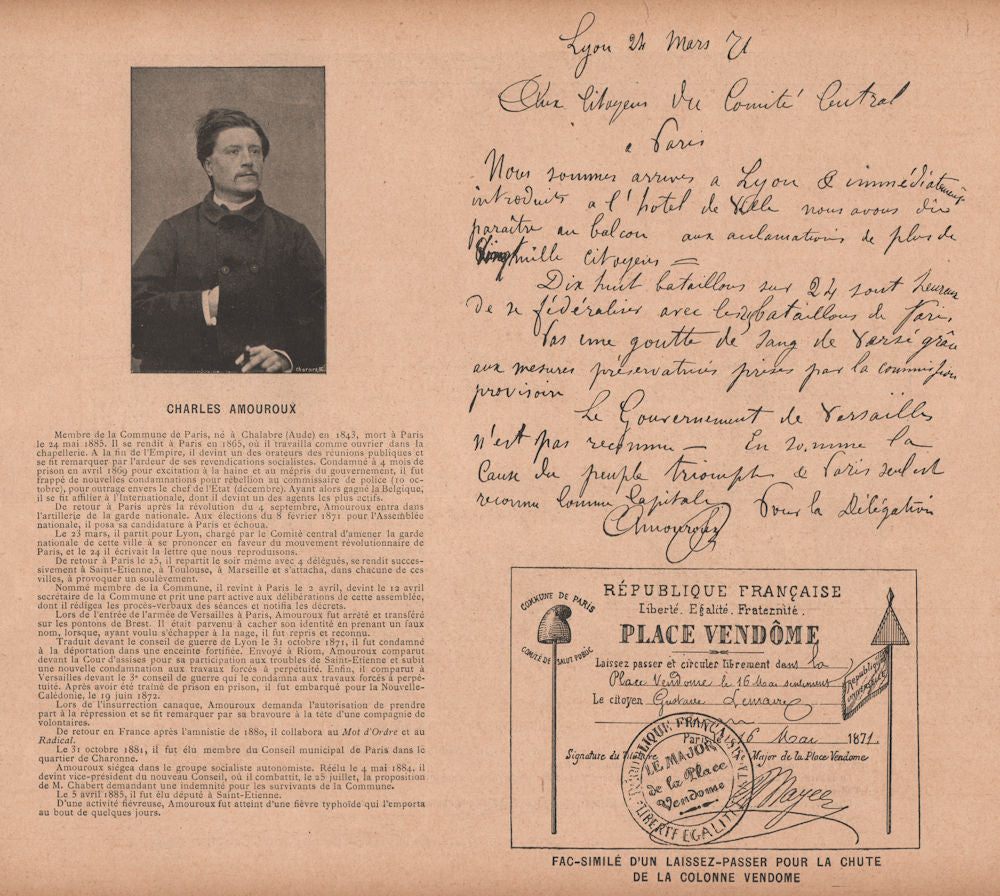 CHARLES AMOUROUX
Membre de la Commune de Paris, né à Chalabre (Aude) en 1843, mort à Paris
le 24 mai 1885. Il se rendit à Paris en 1865, où il travailla comme ouvrier dans la
chapellerie. A la fin de l'Empire, il devint un des orateurs des réunions publiques et
se fit remarquer par l'ardeur de ses revendications socialistes. Condamné à 4 mois de
prison en avril 1869 pour excitation à la haine et au mépris du gouvernement, il fut
frappé de nouvelles condamnations pour rébellion au commissaire de police (10 oc-
tobre), pour outrage envers le chef de l'Etat (décembre). Ayant alors gagné la Belgique,
il se fit affilier à l'Internationale, dont il devint un des agents les plus actifs.
De retour à Paris après la révolution du 4 septembre, Amouroux entra dans
l'artillerie de la garde nationale. Aux élections du 8 février 1871 pour l'Assemblée
nationale, il posa sa candidature à Paris et échoua.
Le 23 mars, il partit pour Lyon, chargé par le Comité central d'amener la garde
nationale de cette ville à se prononcer en faveur du mouvement révolutionnaire de
Paris, et le 24 il écrivait la lettre que nous reproduisons.
De retour à Paris le 25, il repartit le soir même avec 4 délégués, se rendit succes-
sivement à Saint-Etienne, à Toulouse, à Marseille et s'attacha, dans chacune de ces
villes, à provoquer un soulèvement.
Nommé membre de la Commune, il revint à Paris le 2 avril, devint le 12 avril
secrétaire de la Commune et prit une part active aux délibérations de cette assemblée,
dont il rédigea les procès-verbaux des séances et notifia les décrets.
Lors de l'entrée de l'armée de Versailles à Paris, Amouroux fut arrêté et transféré
sur les pontons de Brest. Il était parvenu à cacher son identité en prenant un faux
nom, lorsque, ayant voulu s'échapper à la nage, il fut repris et reconnu.
Traduit devant le conseil de guerre de Lyon le 31 octobre 1871, il fut condamné
à la déportation dans une enceinte fortifiée. Envoyé à Riom, Amouroux comparut
devant la Cour d'assises pour sa participation aux troubles de Saint-Etienne et subit
une nouvelle condamnation aux travaux forcés à perpétuité. Enfin, il comparut à
Versailles devant le 3e conseil de guerre qui le condamna aux travaux forcés à perpé-
tuité. Après avoir été traîné de prison en prison, il fut embarqué pour la Nouvelle-
Calédonie, le 19 juin 1872.
Lors de l'insurrection canaque, Amouroux demanda l'autorisation de prendre
part à la répression et se fit remarquer par sa bravoure à la tête d'une compagnie de
volontaires.
De retour en France après l'amnistie de 1880, il collabora au Mot d'Ordre et au
Radical.
Le 31 octobre 1881, il fut élu membre du Conseil municipal de Paris dans le
quartier de Charonne.
Amouroux siégea dans le groupe socialiste autonomiste. Réélu le 4 mai 1884, il
devint vice-président du nouveau Conseil, où il combattit, le 25 juillet, la proposition
de M. Chabert demandant une indemnité pour les survivants de la Commune.
Le 5 avril 1885, il fut élu député à Saint-Etienne.
D'une activité fiévreuse, Amouroux fut atteint d'une fièvre typhoïde qui l'emporta
au bout de quelques jours.
Lyon 24 Mars 71
Aux Citoyens du Comité Central
a Paris
Nous sommes arrives a Lyon & immédiatement
introduits a l'hotel de Ville nous avous du
paraître au balcon aux aclamations de plus de
Cinq mille citoyens =
Dix huit bataillons sur 24 sont heureux
de se fédéraliser avec les bataillons de Paris.
Pas une goutte de sang de versé grâce
aux mesures préservatrices prises par la commission
provisoire
Le Gouvernement de Versailles
n'est pas reconnu — En somme la
Cause du peuple triomphe & Paris seul est
reconnu Comme Capitale
Pour la Délégation
CAmouroux
COMMUNE DE PARIS
COMITÉ DE SALUT PUBLIC
RÉPUBLIQUE FRANÇAISE
Liberté. Egalité. Fraternité.
PLACE VENDÔME
Laissez passer et circuler librement dans la
Place Vendome le 16 Mai seulement
Le citoyen Gustave Lemaire
République universelle
Paris le 16 Mai 1871.
Signature du Major de la Place Vendôme
RÉPUBLIQUE FRANÇAISE
LIBERTÉ EGALITÉ
LE MAJOR
de la Place
Vendome
Mayer
FAC-SIMILÉ D'UN LAISSEZ-PASSER POUR LA CHUTE
DE LA COLONNE VENDOME